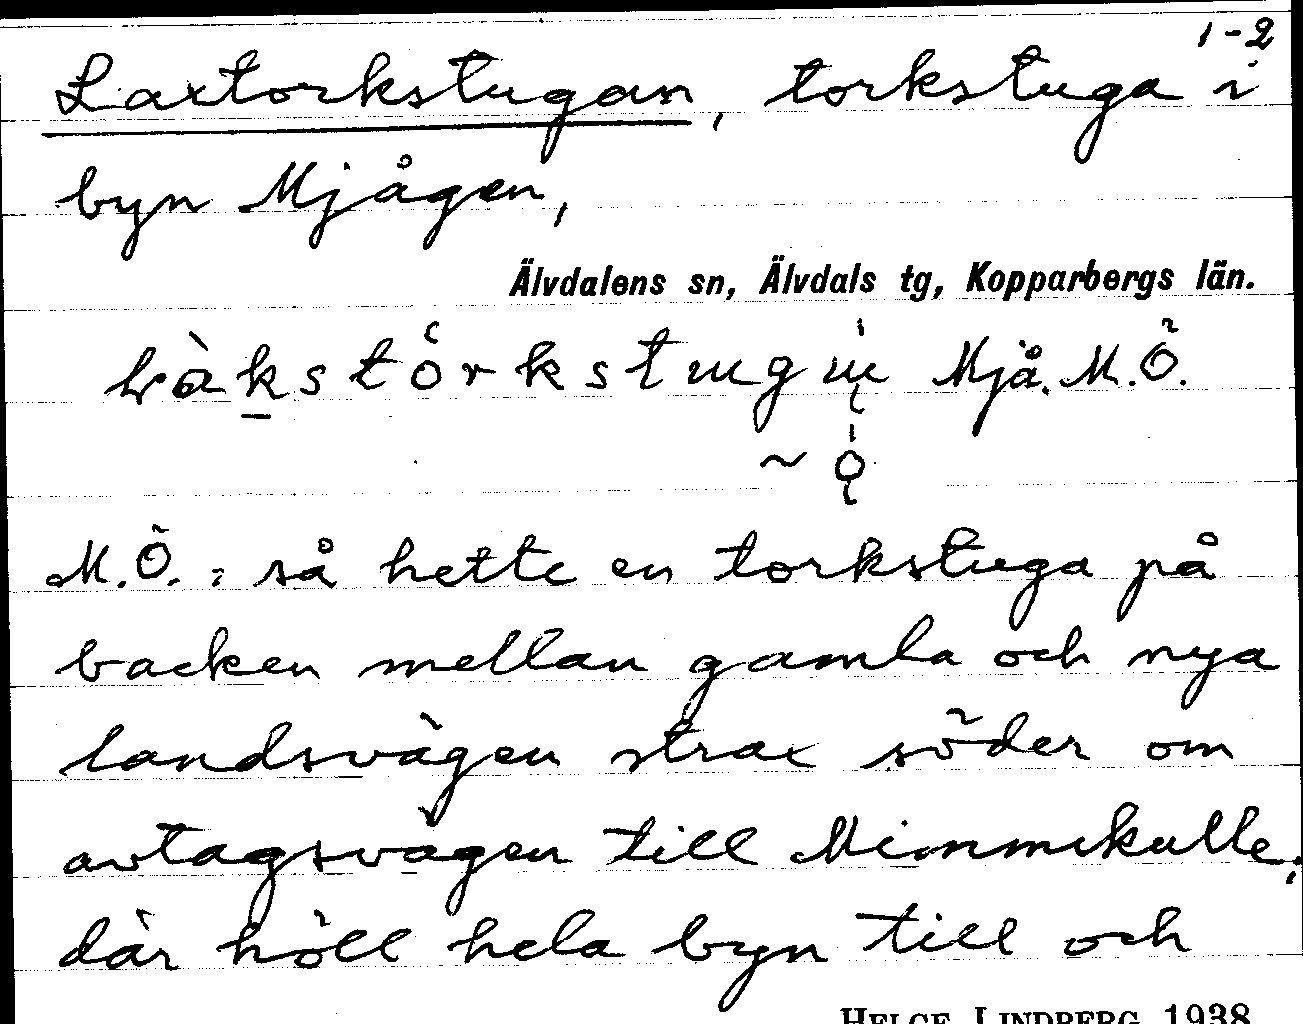 1-2
Laxtorkstugan, torkstuga i
byn Mjågen,
Älvdalens sn, Älvdals tg, Kopparbergs län.
Mjå. M.Ö.
M.Ö.: så hette en torkstuga på
backen mellan gamla och nya
landsvägen strax söder om
avtagsvägen till Mimmikulle;
där höll hela byn till och
HELGE LINDBERG 1938